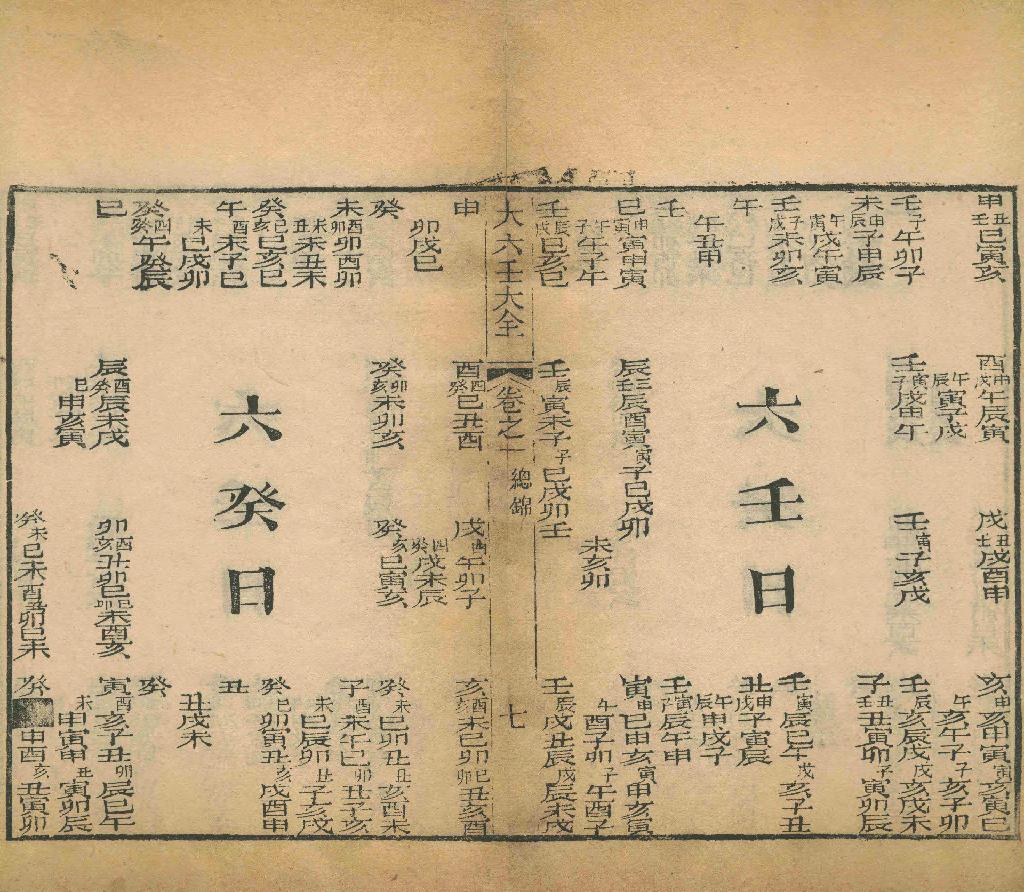 申丑壬巳寅亥
酉申戌午辰寅
戌丑壬戌酉申
亥申亥申寅寅亥寅巳
午亥午子子亥子卯
壬子午卯子
壬寅子戌申午
壬寅子亥戌
壬辰亥辰戌戌亥戌未
未申辰子申辰
午辰寅子戌
子丑壬丑寅卯子寅卯辰
午寅戌午寅
壬子戌未卯亥
六壬日
壬寅辰巳午戌亥子丑
午
丑申戌子寅辰
午丑申
午辰申戌子
壬
壬寅辰午申
巳申寅寅申寅
辰壬辰酉寅寅子巳戌卯
寅申巳申亥寅申亥寅
午子午子午
未亥卯
午酉子卯子午酉子
壬辰戌巳亥巳
壬辰寅未子子巳戌卯壬
壬辰戌丑辰戌辰未戌
大六壬大全
卷之十
總錦
七
申
酉酉癸巳丑酉
戌酉午卯子
亥酉未巳卯巳丑亥酉
卯戌巳
酉癸戌未辰
癸
癸卯亥未卯亥
癸亥巳寅亥
癸未巳卯丑丑亥酉未
未酉卯卯酉卯
子酉未午巳卯丑子亥
未丑未丑未
未巳辰卯丑子亥戌
癸巳癸巳亥巳
六癸日
癸巳卯寅丑亥戌酉申
午酉未子巳
丑
未巳戌卯
丑戌未
癸酉癸午癸辰
癸
巳
辰酉癸辰未戌
卯酉亥丑卯巳巳未酉亥
寅酉亥子丑卯辰巳午
巳申亥寅
未申寅申丑寅卯辰
癸未巳未酉丑卯巳未
癸申酉亥丑寅卯